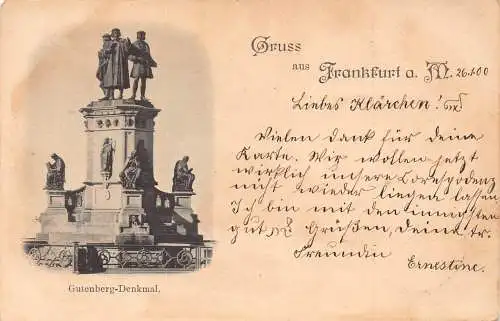 Gruss
aus Frankfurt a. M. 26.100
Liebes Klärchen!
Vielen dank für deine
Karte. Wir wollen jetzt
wirklich unsere Corespodenz
nicht wieder liegen lassen
Ich bin mit den innigsten
gut Grüßen, deine tr.
Freundin
Ernestine.
Gutenberg-Denkmal.